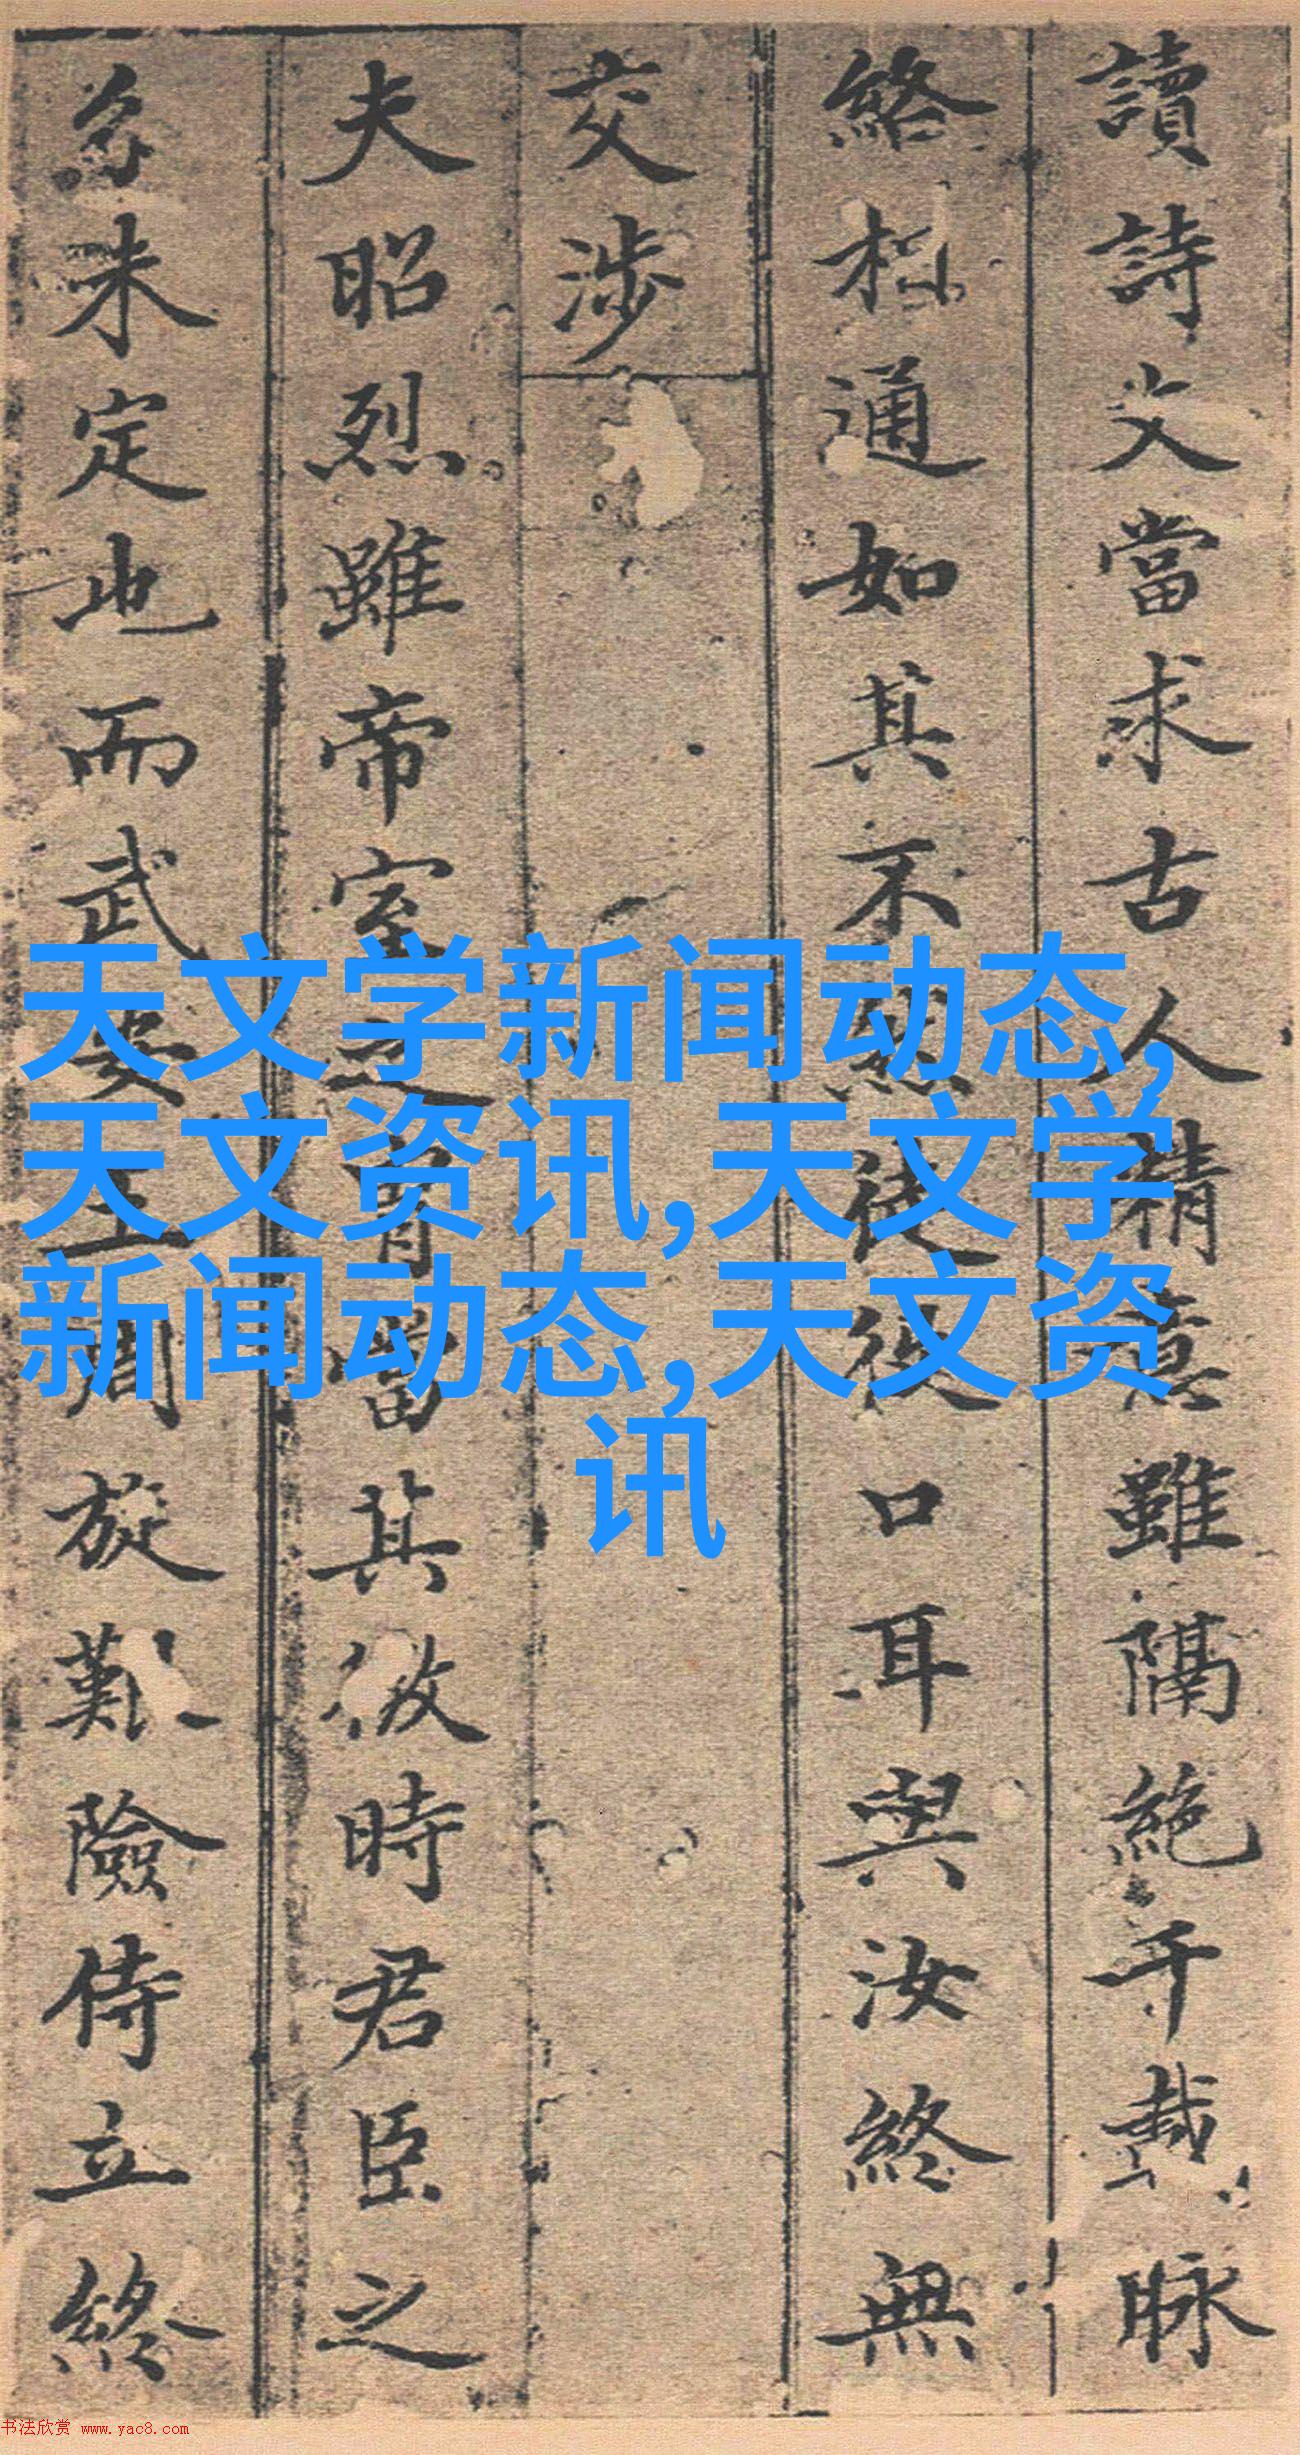 讀詩文當求古人精意雖隔絕千載脉
絡相通如其不然徒從口耳與汝終無
交涉
夫昭烈雖帝室之胄當其微時君臣之
分未定也而武安王周旋艱險侍立終
天文学新闻动态,
天文资讯,天文学
新闻动态,天文资
讯
书法欣赏 www.yac8.com